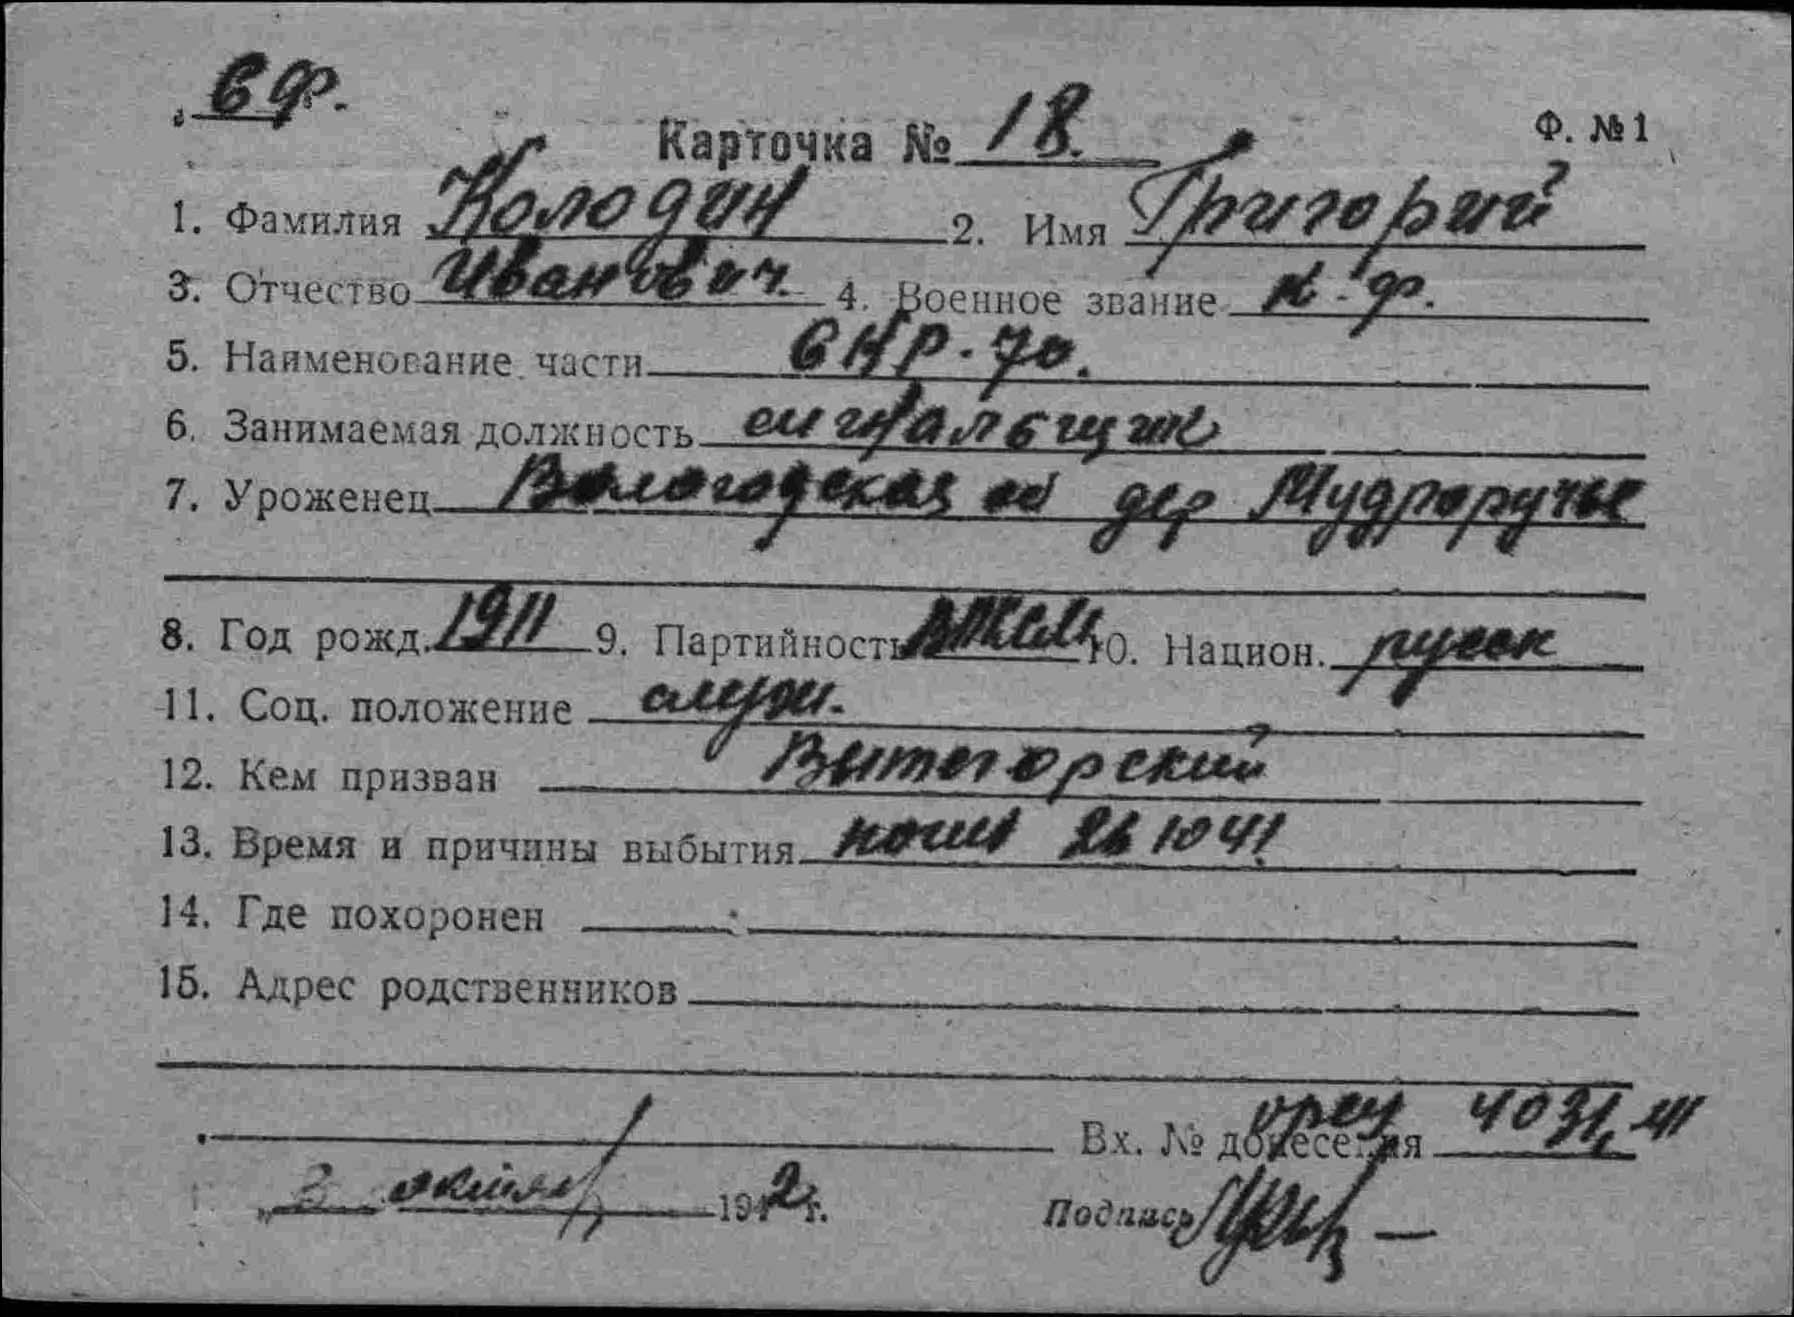 Вф.
Карточка № 18.
Ф. №1
1. Фамилия Колодин 2. Имя Григорий
3. Отчество Иванович. 4. Военное звание к-ф.
5. Наименование части СНР-70.
6. Занимаемая должность сигнальщик
7. Уроженец Вологодская об дер Мудроручье
8. Год рожд. 1911 9. Партийность ВЛКСМ 10. Национ. русск
11. Соц. положение служ.
12. Кем призван Вытегорский
13. Время и причины выбытия погиб 26 10 41
14. Где похоронен
15. Адрес родственников
Вх. № донесения 4031
„3 октября 1942 г.
Подпись